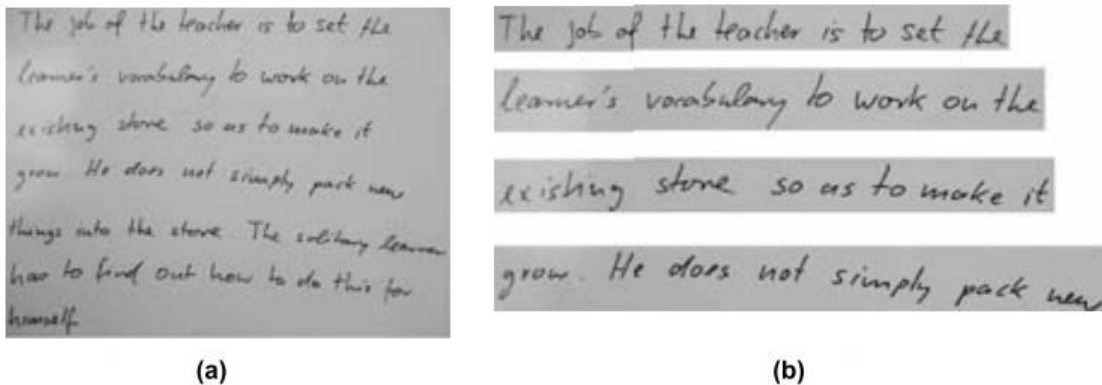 The job of the teacher is to set the
learner's vocabulary to work on the
existing store so as to make it
grow. He does not simply pack new
things into the store. The solitary learner
has to find out how to do this for
himself.
(a)
The job of the teacher is to set the
learner's vocabulary to work on the
existing store so as to make it
grow. He does not simply pack new
(b)